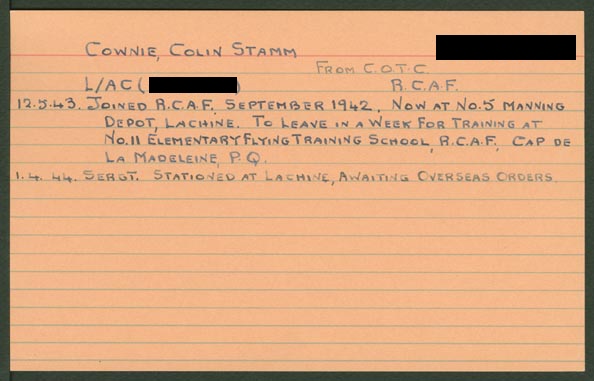 COWNIE, COLIN STAMM
FROM C.O.T.C.
L/AC ( ) R.C.A.F.
12.5.43. JOINED R.C.A.F. SEPTEMBER 1942. NOW AT NO.5 MANNING
DEPOT, LACHINE. TO LEAVE IN A WEEK FOR TRAINING AT
NO.11 ELEMENTARY FLYING TRAINING SCHOOL, R.C.A.F. CAP DE
LA MADELEINE, P.Q.
1.4.44. SERGT. STATIONED AT LACHINE, AWAITING OVERSEAS ORDERS.